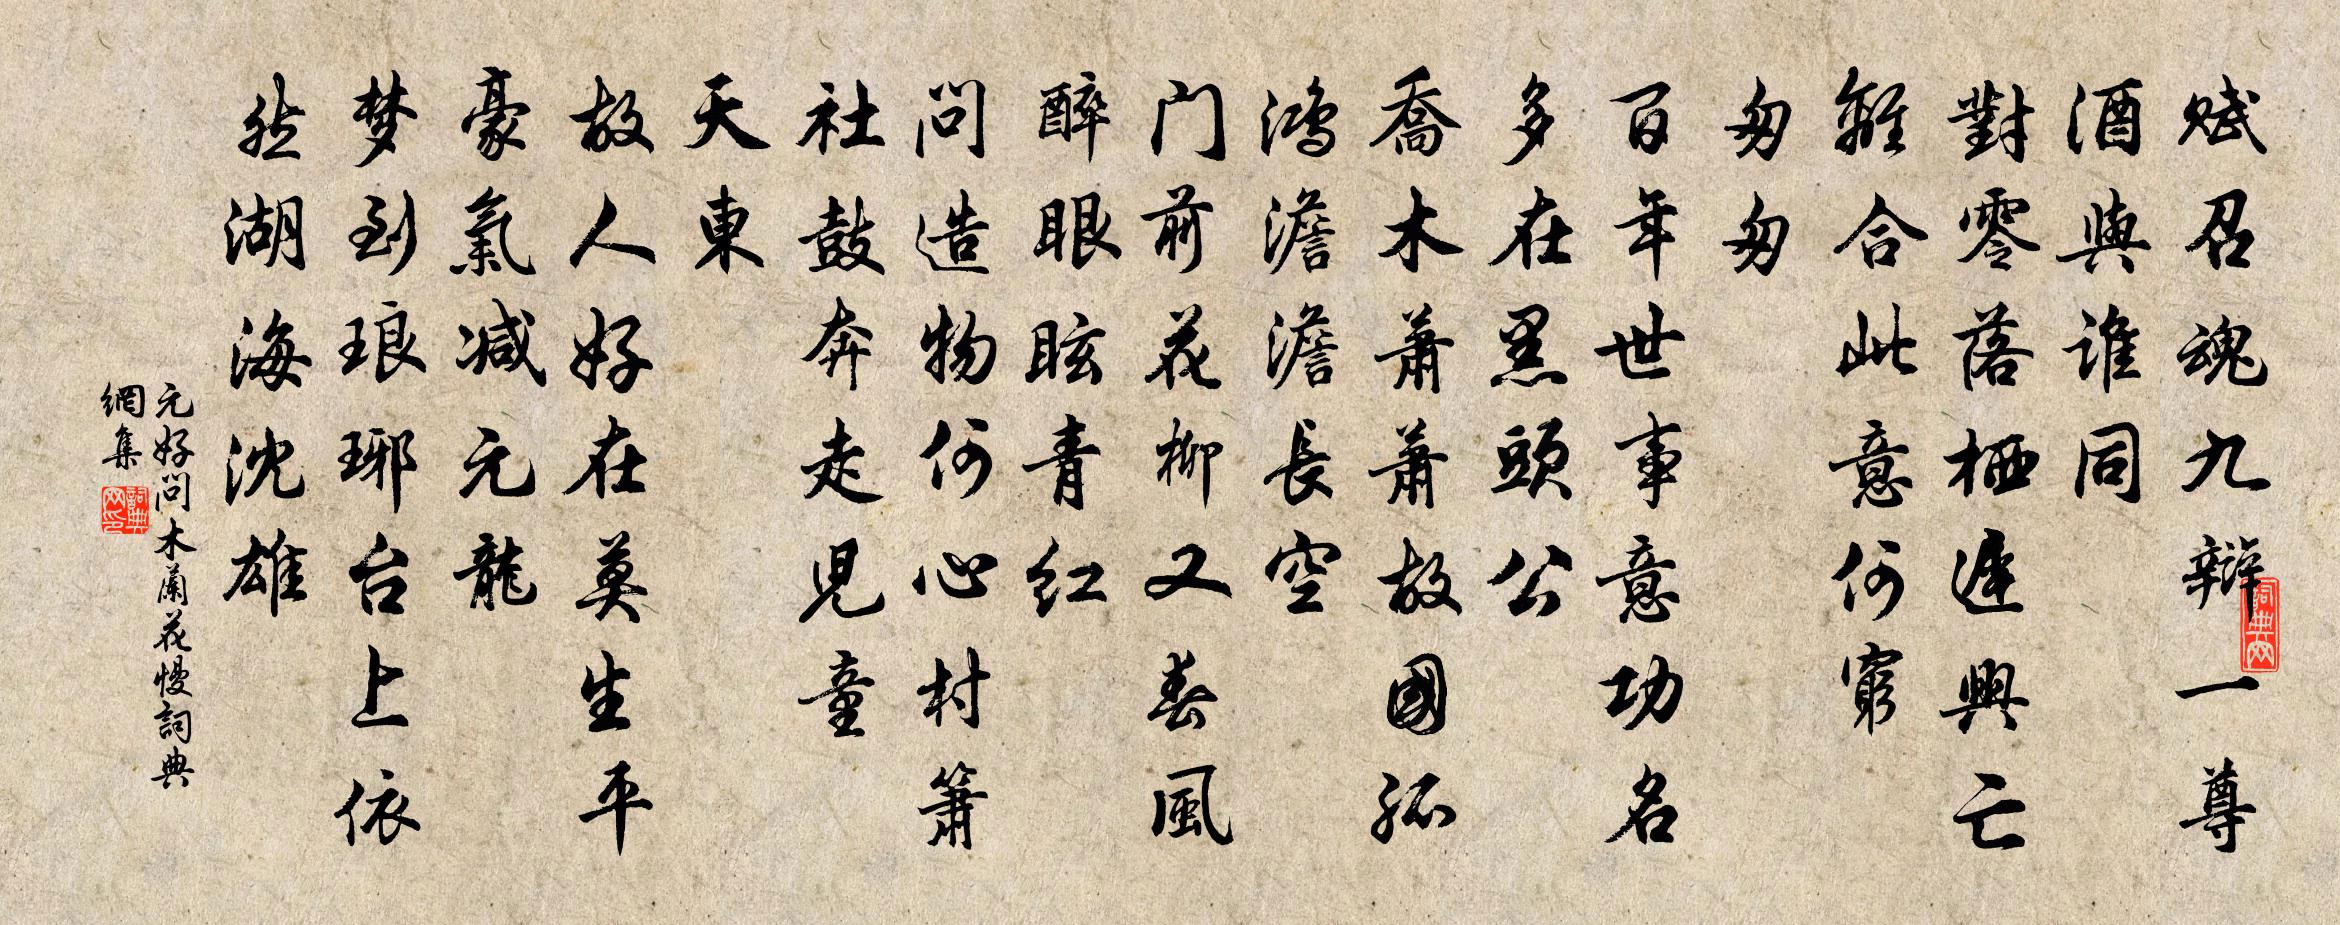 赋召魂九辩一尊
酒與谁同
對零落栖遲興亡
離合此意何窮
匆匆
百年世事意功名
多在黑頭公
喬木萧萧故國孤
鸿澹澹長空
门前花柳又春風
醉眼眩青红
问造物何心村箫
社鼓奔走児童
天東
故人好在莫生平
豪氣减元龍
梦到琅琊台上依
然湖海沈雄
元好问木蘭花慢詞典
網集
詞典网
詞典网印